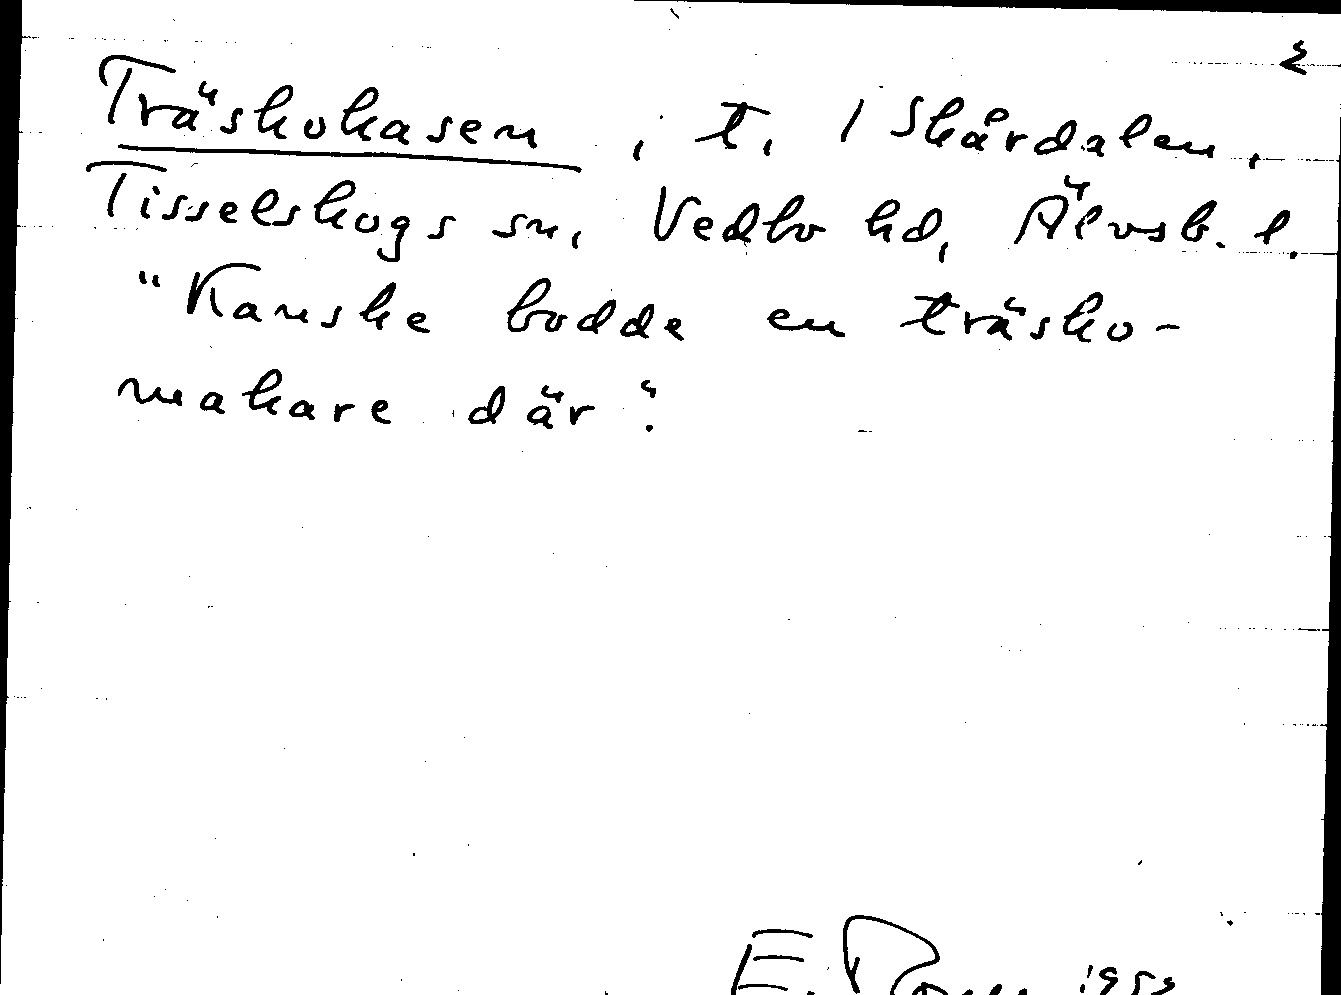 2
Träskokasen, t. 1 Skårdalen,
Tisselskogs sn, Vedbo hd, Älvsb. l.
"Kanske bodde en träsko-
makare där".
E.